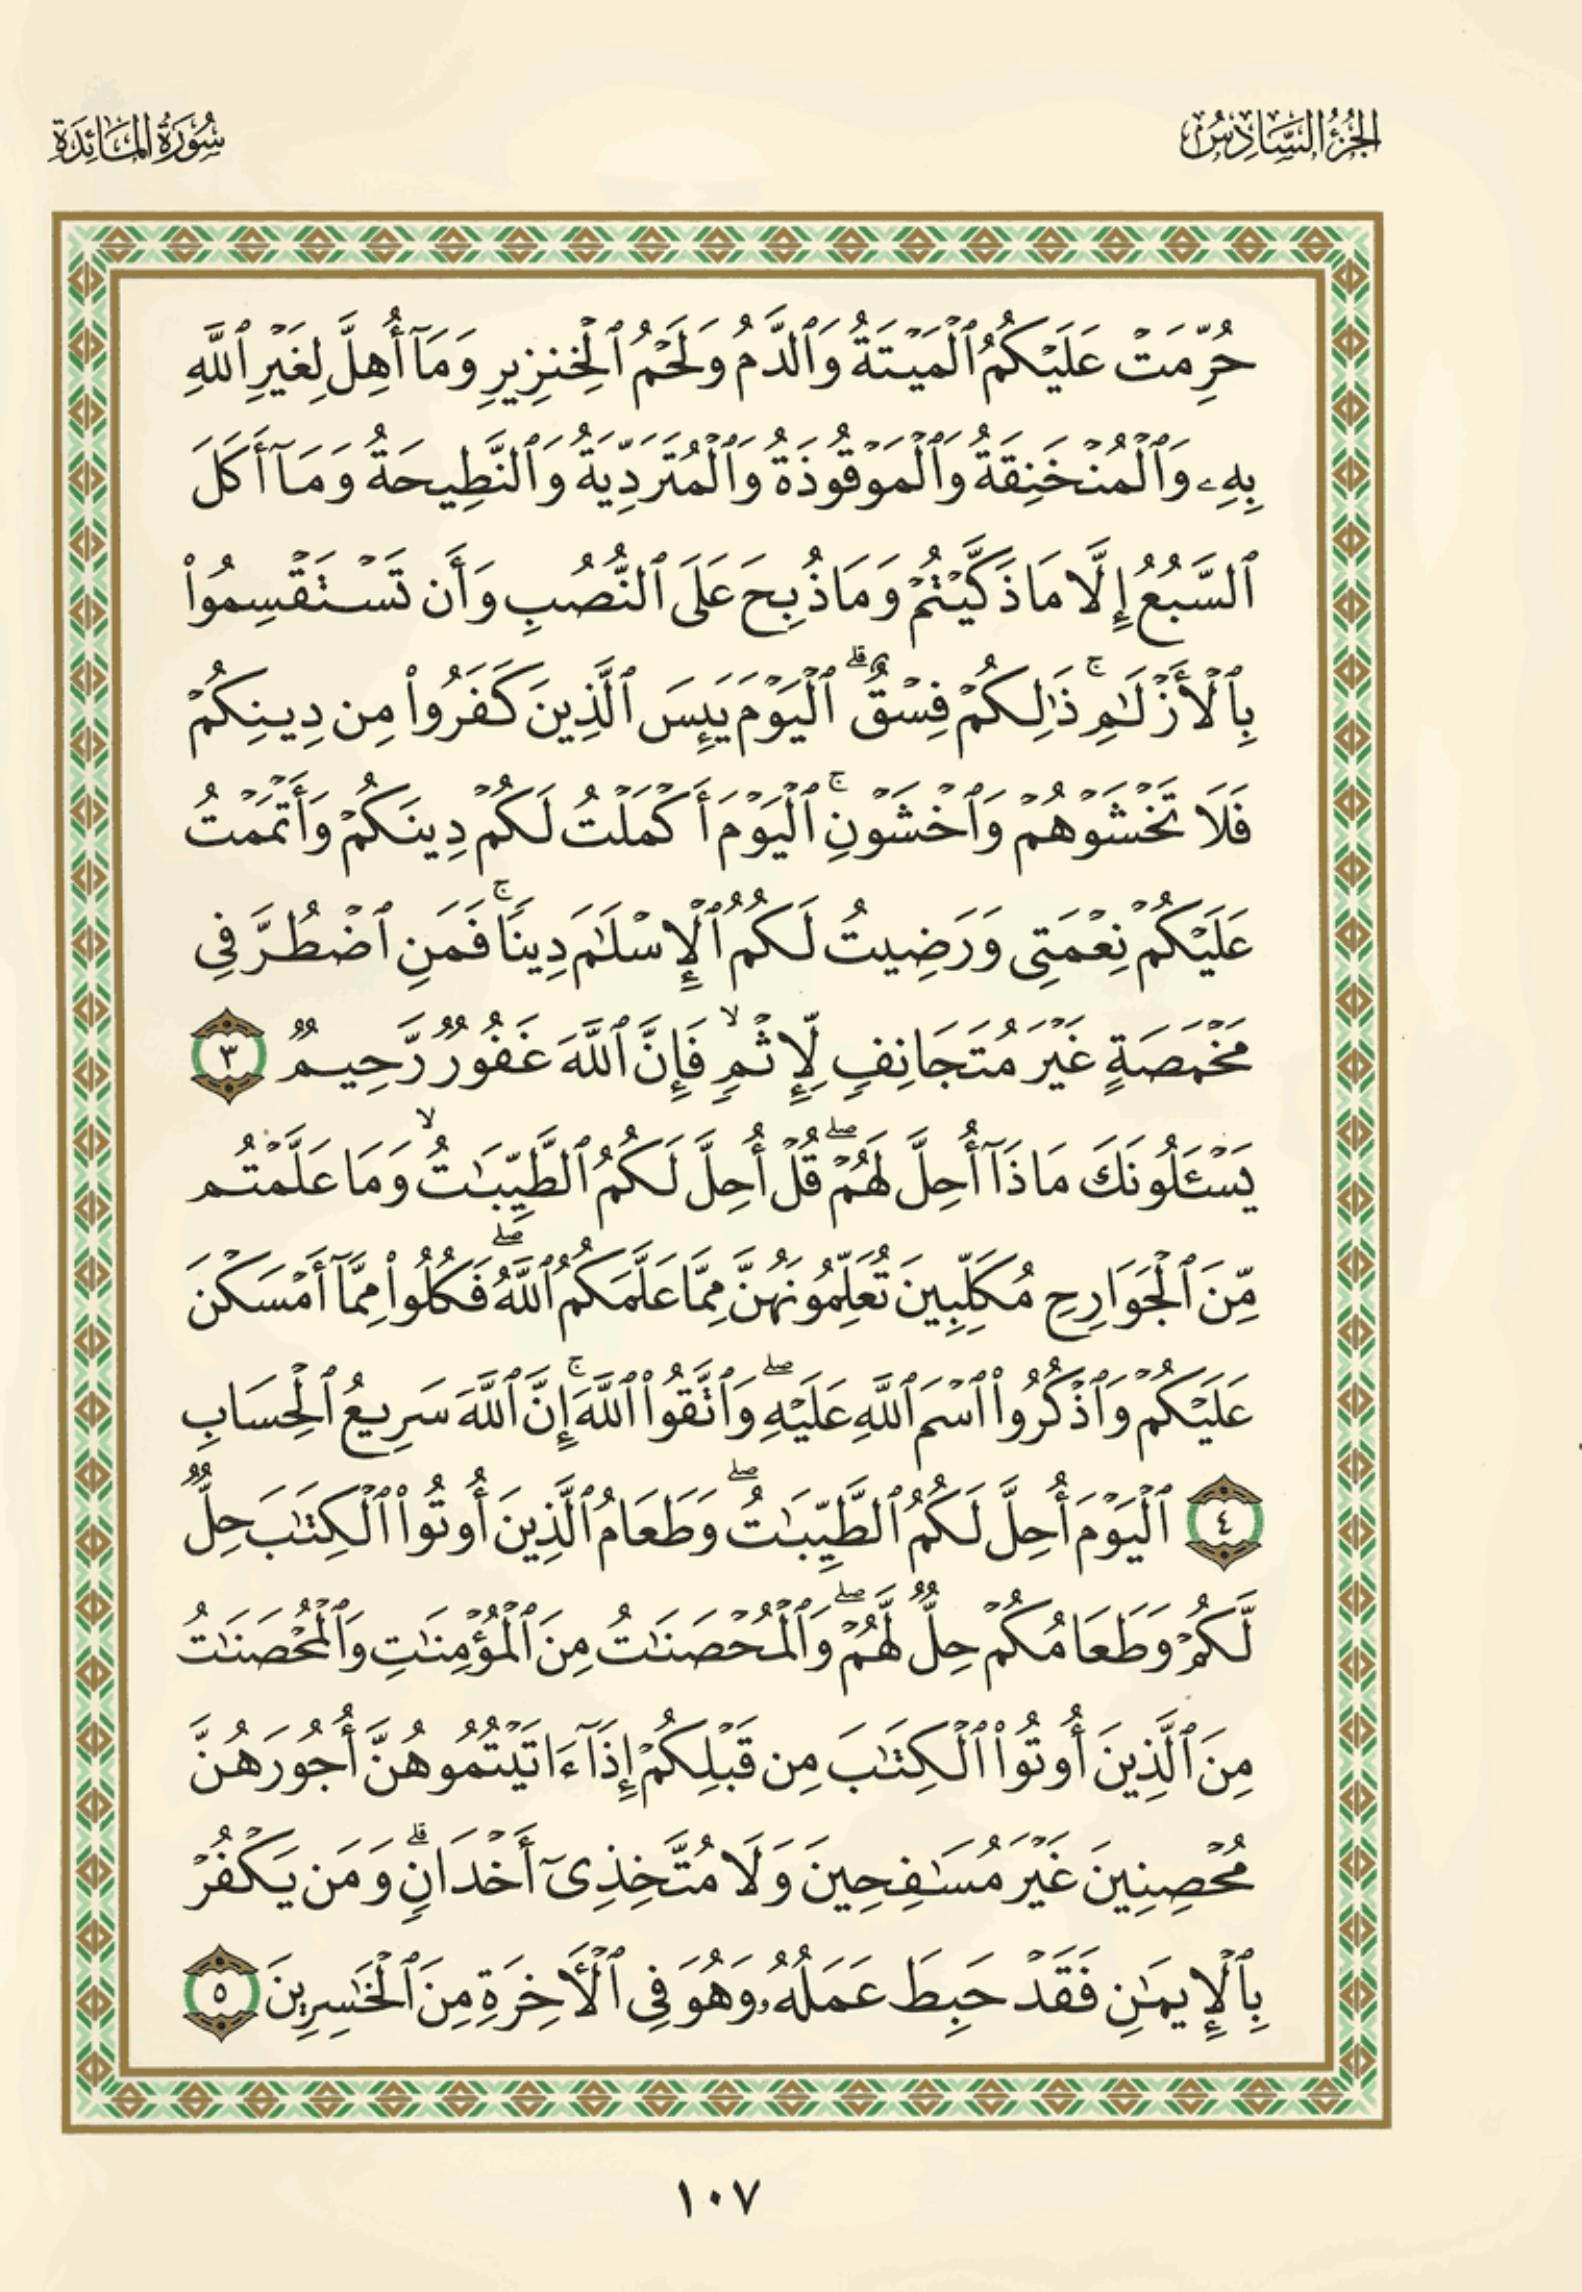 الجزء السادس
سورة المائدة
حُرِّمَتْ عَلَيْكُمُ ٱلْمَيْتَةُ وَٱلدَّمُ وَلَحْمُ ٱلْخِنزِيرِ وَمَآ أُهِلَّ لِغَيْرِ ٱللَّهِ
بِهِۦ وَٱلْمُنْخَنِقَةُ وَٱلْمَوْقُوذَةُ وَٱلْمُتَرَدِّيَةُ وَٱلنَّطِيحَةُ وَمَآ أَكَلَ
ٱلسَّبُعُ إِلَّا مَا ذَكَّيْتُمْ وَمَا ذُبِحَ عَلَى ٱلنُّصُبِ وَأَن تَسْتَقْسِمُوا۟
بِٱلْأَزْلَٰمِ ۚ ذَٰلِكُمْ فِسْقٌ ۗ ٱلْيَوْمَ يَئِسَ ٱلَّذِينَ كَفَرُوا۟ مِن دِينِكُمْ
فَلَا تَخْشَوْهُمْ وَٱخْشَوْنِ ۚ ٱلْيَوْمَ أَكْمَلْتُ لَكُمْ دِينَكُمْ وَأَتْمَمْتُ
عَلَيْكُمْ نِعْمَتِى وَرَضِيتُ لَكُمُ ٱلْإِسْلَٰمَ دِينًا ۚ فَمَنِ ٱضْطُرَّ فِى
مَخْمَصَةٍ غَيْرَ مُتَجَانِفٍ لِّإِثْمٍ ۙ فَإِنَّ ٱللَّهَ غَفُورٌ رَّحِيمٌ ٣
يَسْـَٔلُونَكَ مَاذَآ أُحِلَّ لَهُمْ ۖ قُلْ أُحِلَّ لَكُمُ ٱلطَّيِّبَٰتُ ۙ وَمَا عَلَّمْتُم
مِّنَ ٱلْجَوَارِحِ مُكَلِّبِينَ تُعَلِّمُونَهُنَّ مِمَّا عَلَّمَكُمُ ٱللَّهُ ۖ فَكُلُوا۟ مِمَّآ أَمْسَكْنَ
عَلَيْكُمْ وَٱذْكُرُوا۟ ٱسْمَ ٱللَّهِ عَلَيْهِ ۖ وَٱتَّقُوا۟ ٱللَّهَ ۚ إِنَّ ٱللَّهَ سَرِيعُ ٱلْحِسَابِ
٤ ٱلْيَوْمَ أُحِلَّ لَكُمُ ٱلطَّيِّبَٰتُ ۖ وَطَعَامُ ٱلَّذِينَ أُوتُوا۟ ٱلْكِتَٰبَ حِلٌّ
لَّكُمْ وَطَعَامُكُمْ حِلٌّ لَّهُمْ ۖ وَٱلْمُحْصَنَٰتُ مِنَ ٱلْمُؤْمِنَٰتِ وَٱلْمُحْصَنَٰتُ
مِنَ ٱلَّذِينَ أُوتُوا۟ ٱلْكِتَٰبَ مِن قَبْلِكُمْ إِذَآ ءَاتَيْتُمُوهُنَّ أُجُورَهُنَّ
مُحْصِنِينَ غَيْرَ مُسَٰفِحِينَ وَلَا مُتَّخِذِىٓ أَخْدَانٍ ۗ وَمَن يَكْفُرْ
بِٱلْإِيمَٰنِ فَقَدْ حَبِطَ عَمَلُهُۥ وَهُوَ فِى ٱلْـَٔاخِرَةِ مِنَ ٱلْخَٰسِرِينَ ٥
١٠٧